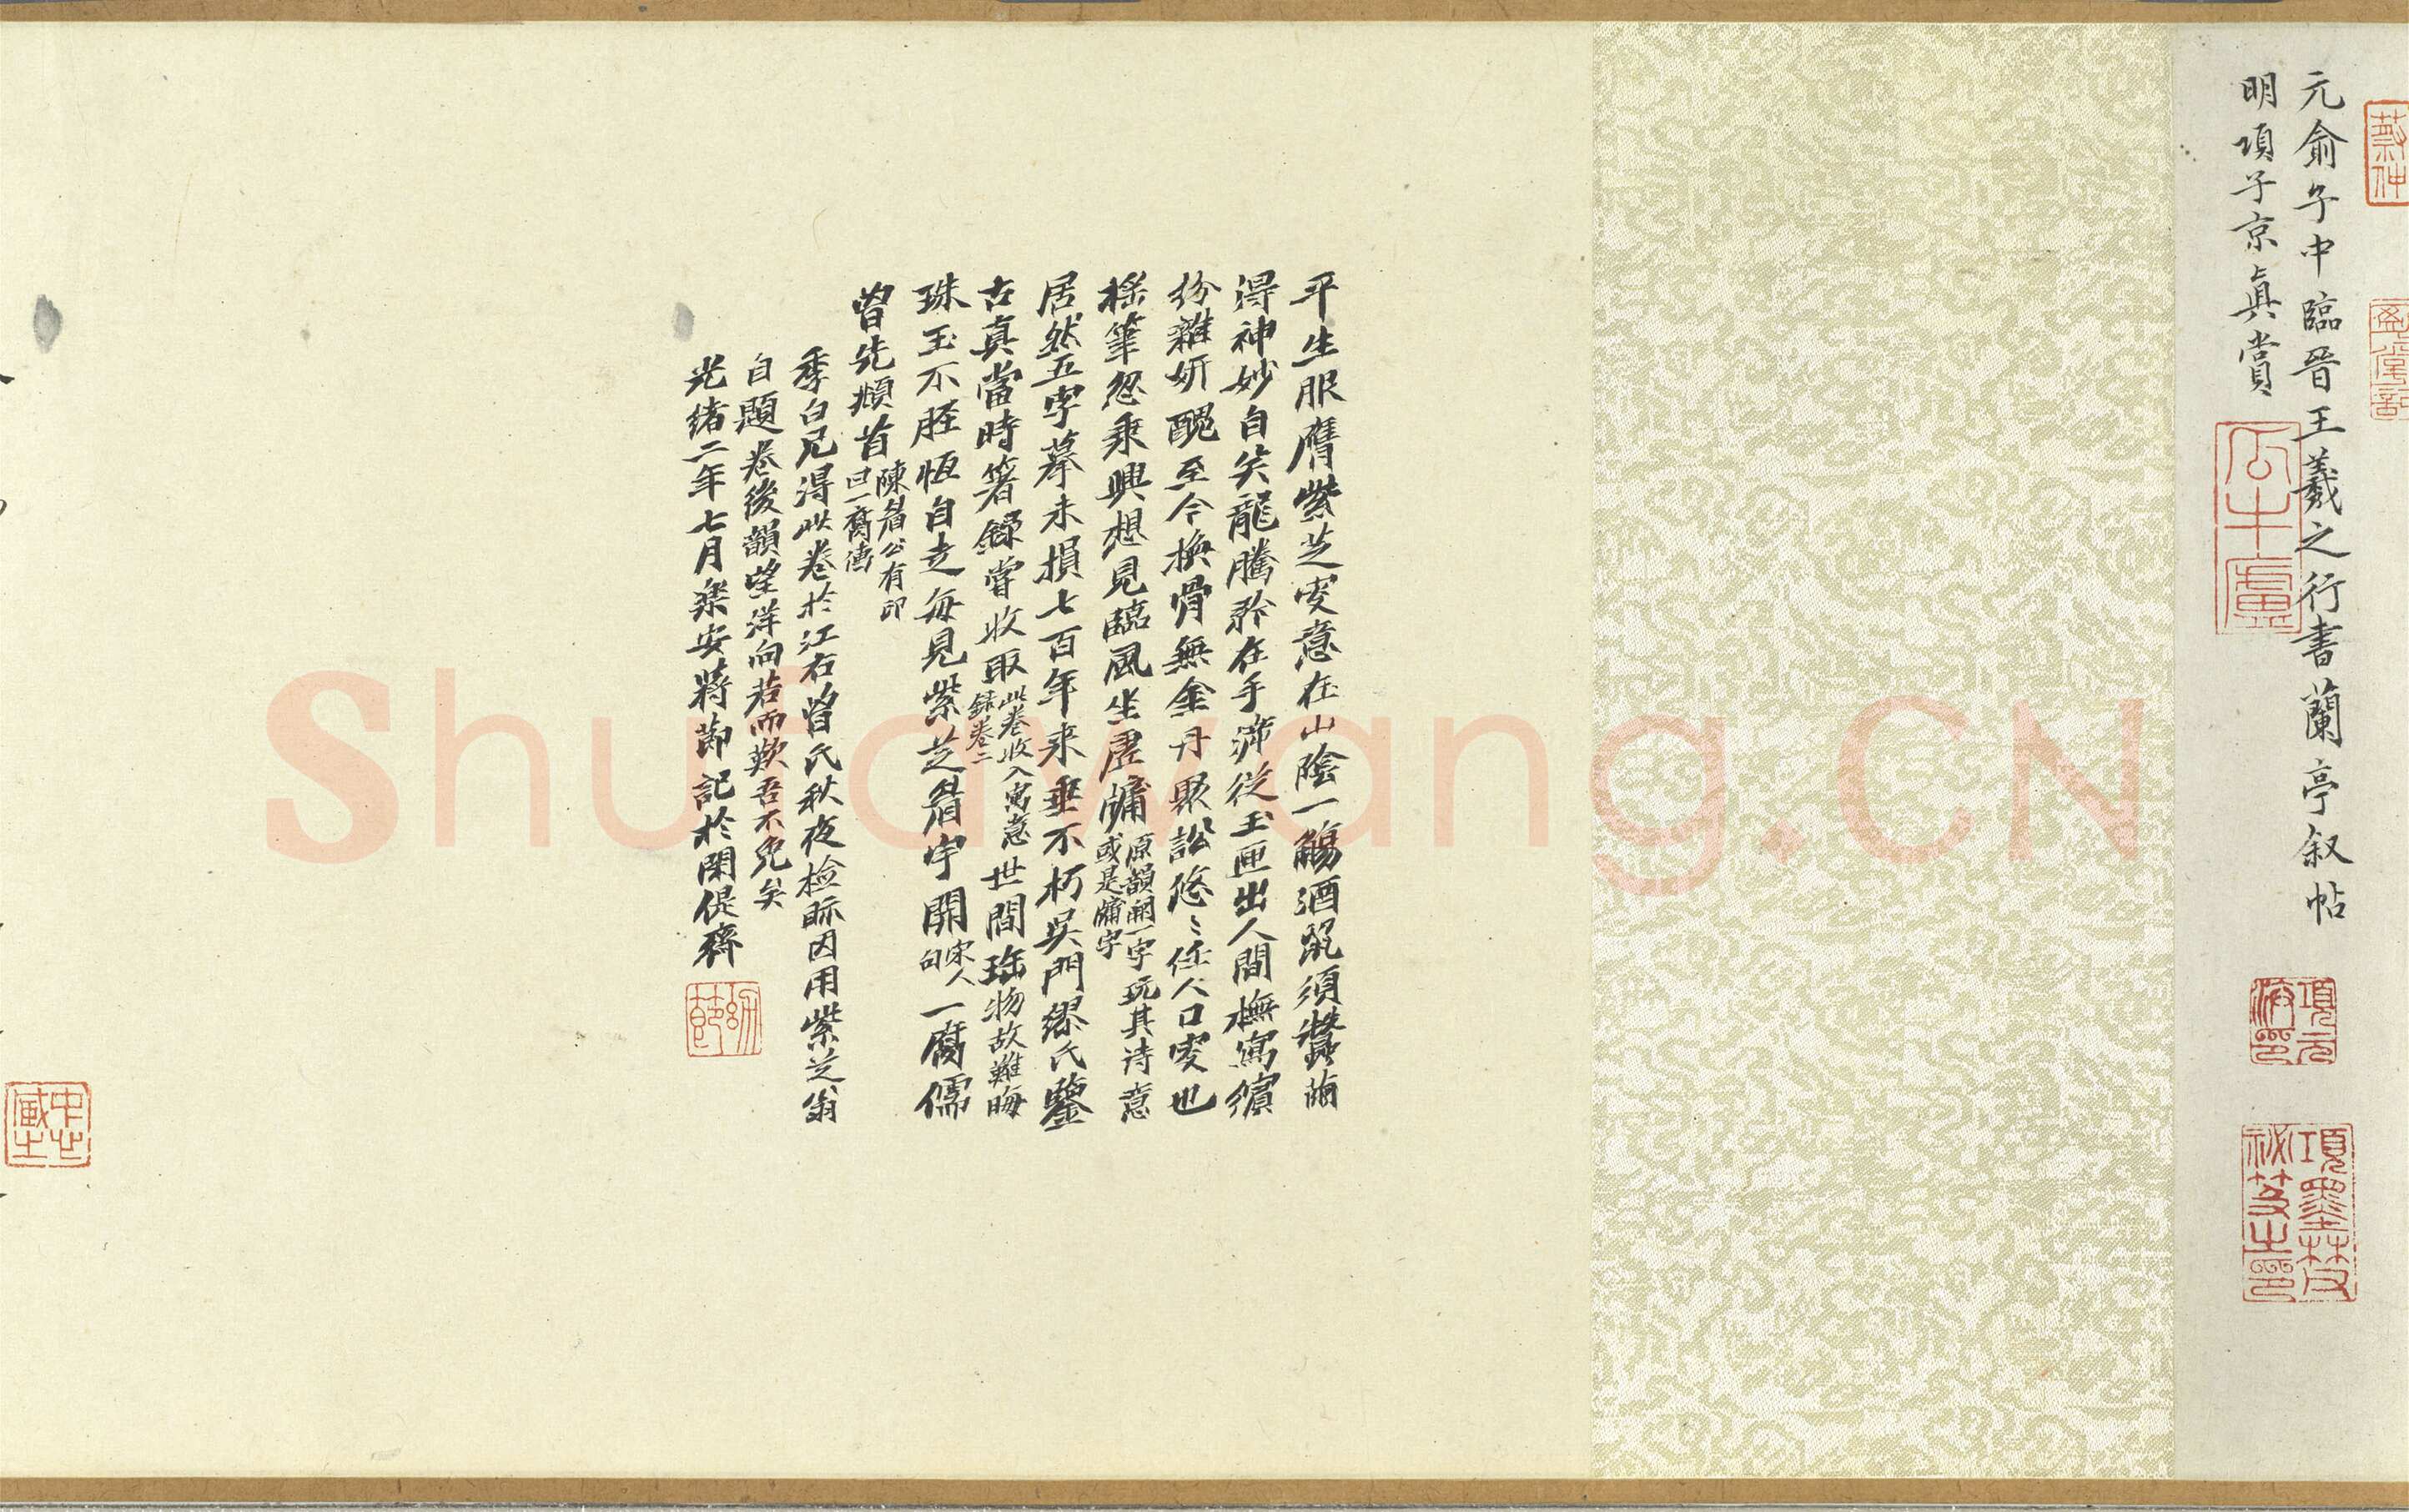 元俞子中臨晉王羲之行書蘭亭叙帖
明項子京真賞
項元汴印
項墨林父祕笈之印
平生服膺紫芝叟意在山陰一觴酒鼠須蠶繭
得神妙自矣龍騰於在手漭從玉匣出人間橅寫繽
紛雜妍醜至今換骨無金丹聚訟悠〻任人口叟也
搖筆忽乘興想見臨風坐虛牖
原韻闕一字
或是牖字
玩其诗意
居然五字摹未損七百年来垂不朽吳門繆氏鑒
古真當時箸錄嘗收取
此卷收入寓意
録卷二
世間珤物故難晦
珠玉不胫恆自走每見紫芝眉宇開
宋人
句
一腐儒
曾先頫首
陳眉公有印
曰一腐儒
季白兄得此卷於江右曾氏秋夜檢眎因用紫芝翁
自題卷後韻望洋向若而歎吾不免矣
光緒二年七月樂安蔣節記於閑偍齋
Shufawang.CN